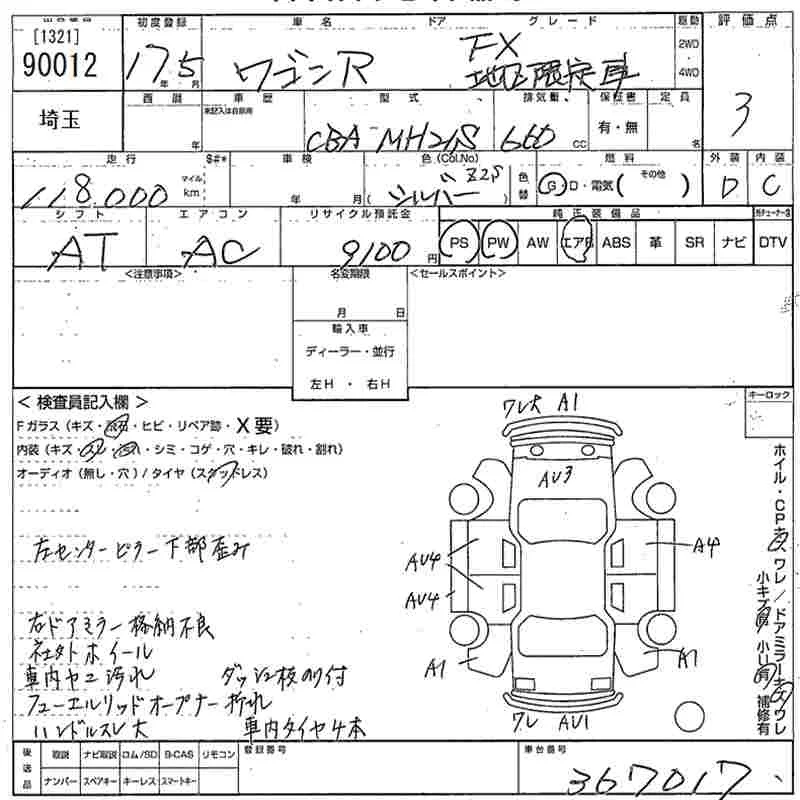 出品番号 初度登録 車名 ドア グレード 駆動 評価点
[1321]
90012 17年5月 ワゴンR FX 地区限定車 2WD・4WD 3
埼玉 西暦 年 車歴 未記入は自家用 型式 CBA-MH21S 排気量 660 CC 保証書 有・無 定員 名
走行 $#* 車検 色(Col.No) 燃料 外装 内装
118.000 マイル km 年 月 ( シルバー Z2S ) 色替 G・D・電気( その他 ) D C
シフト エアコン リサイクル預託金 純正装備品
AT AC 9100円 PS PW AW エアB ABS 革 SR ナビ DTV
<注意事項> 名変期限 <セールスポイント>
月 日
輸入車
ディーラー・並行
左H ・ 右H
キーロック
< 検査員記入欄 >
Fガラス(キズ・飛石・ヒビ・リペア跡・X要)
内装(キズ・スレ・・シミ・コゲ・穴・キレ・破れ・割れ)
オーディオ(無し・穴)/タイヤ(スタッドレス)
ワレ大 A1
AU3
AU4
AU4
A4
A1
A1
ワレ AU1
左センターピラー下部歪み
右ドアミラー格納不良
社外ホイール
車内ヤニ汚れ ダッシュ板のり付
フューエルリッドオープナー折れ
ハンドルスレ大 車内タイヤ4本
ホイル・CPキズ ワレ/ドアミラーキズワレ
小キズ有 小U有 補修有
後送品 取説 ナビ取説 ロム/SD B-CAS リモコン 登録番号 車台番号
ナンバー スペアキー キーレス スマートキー 367017